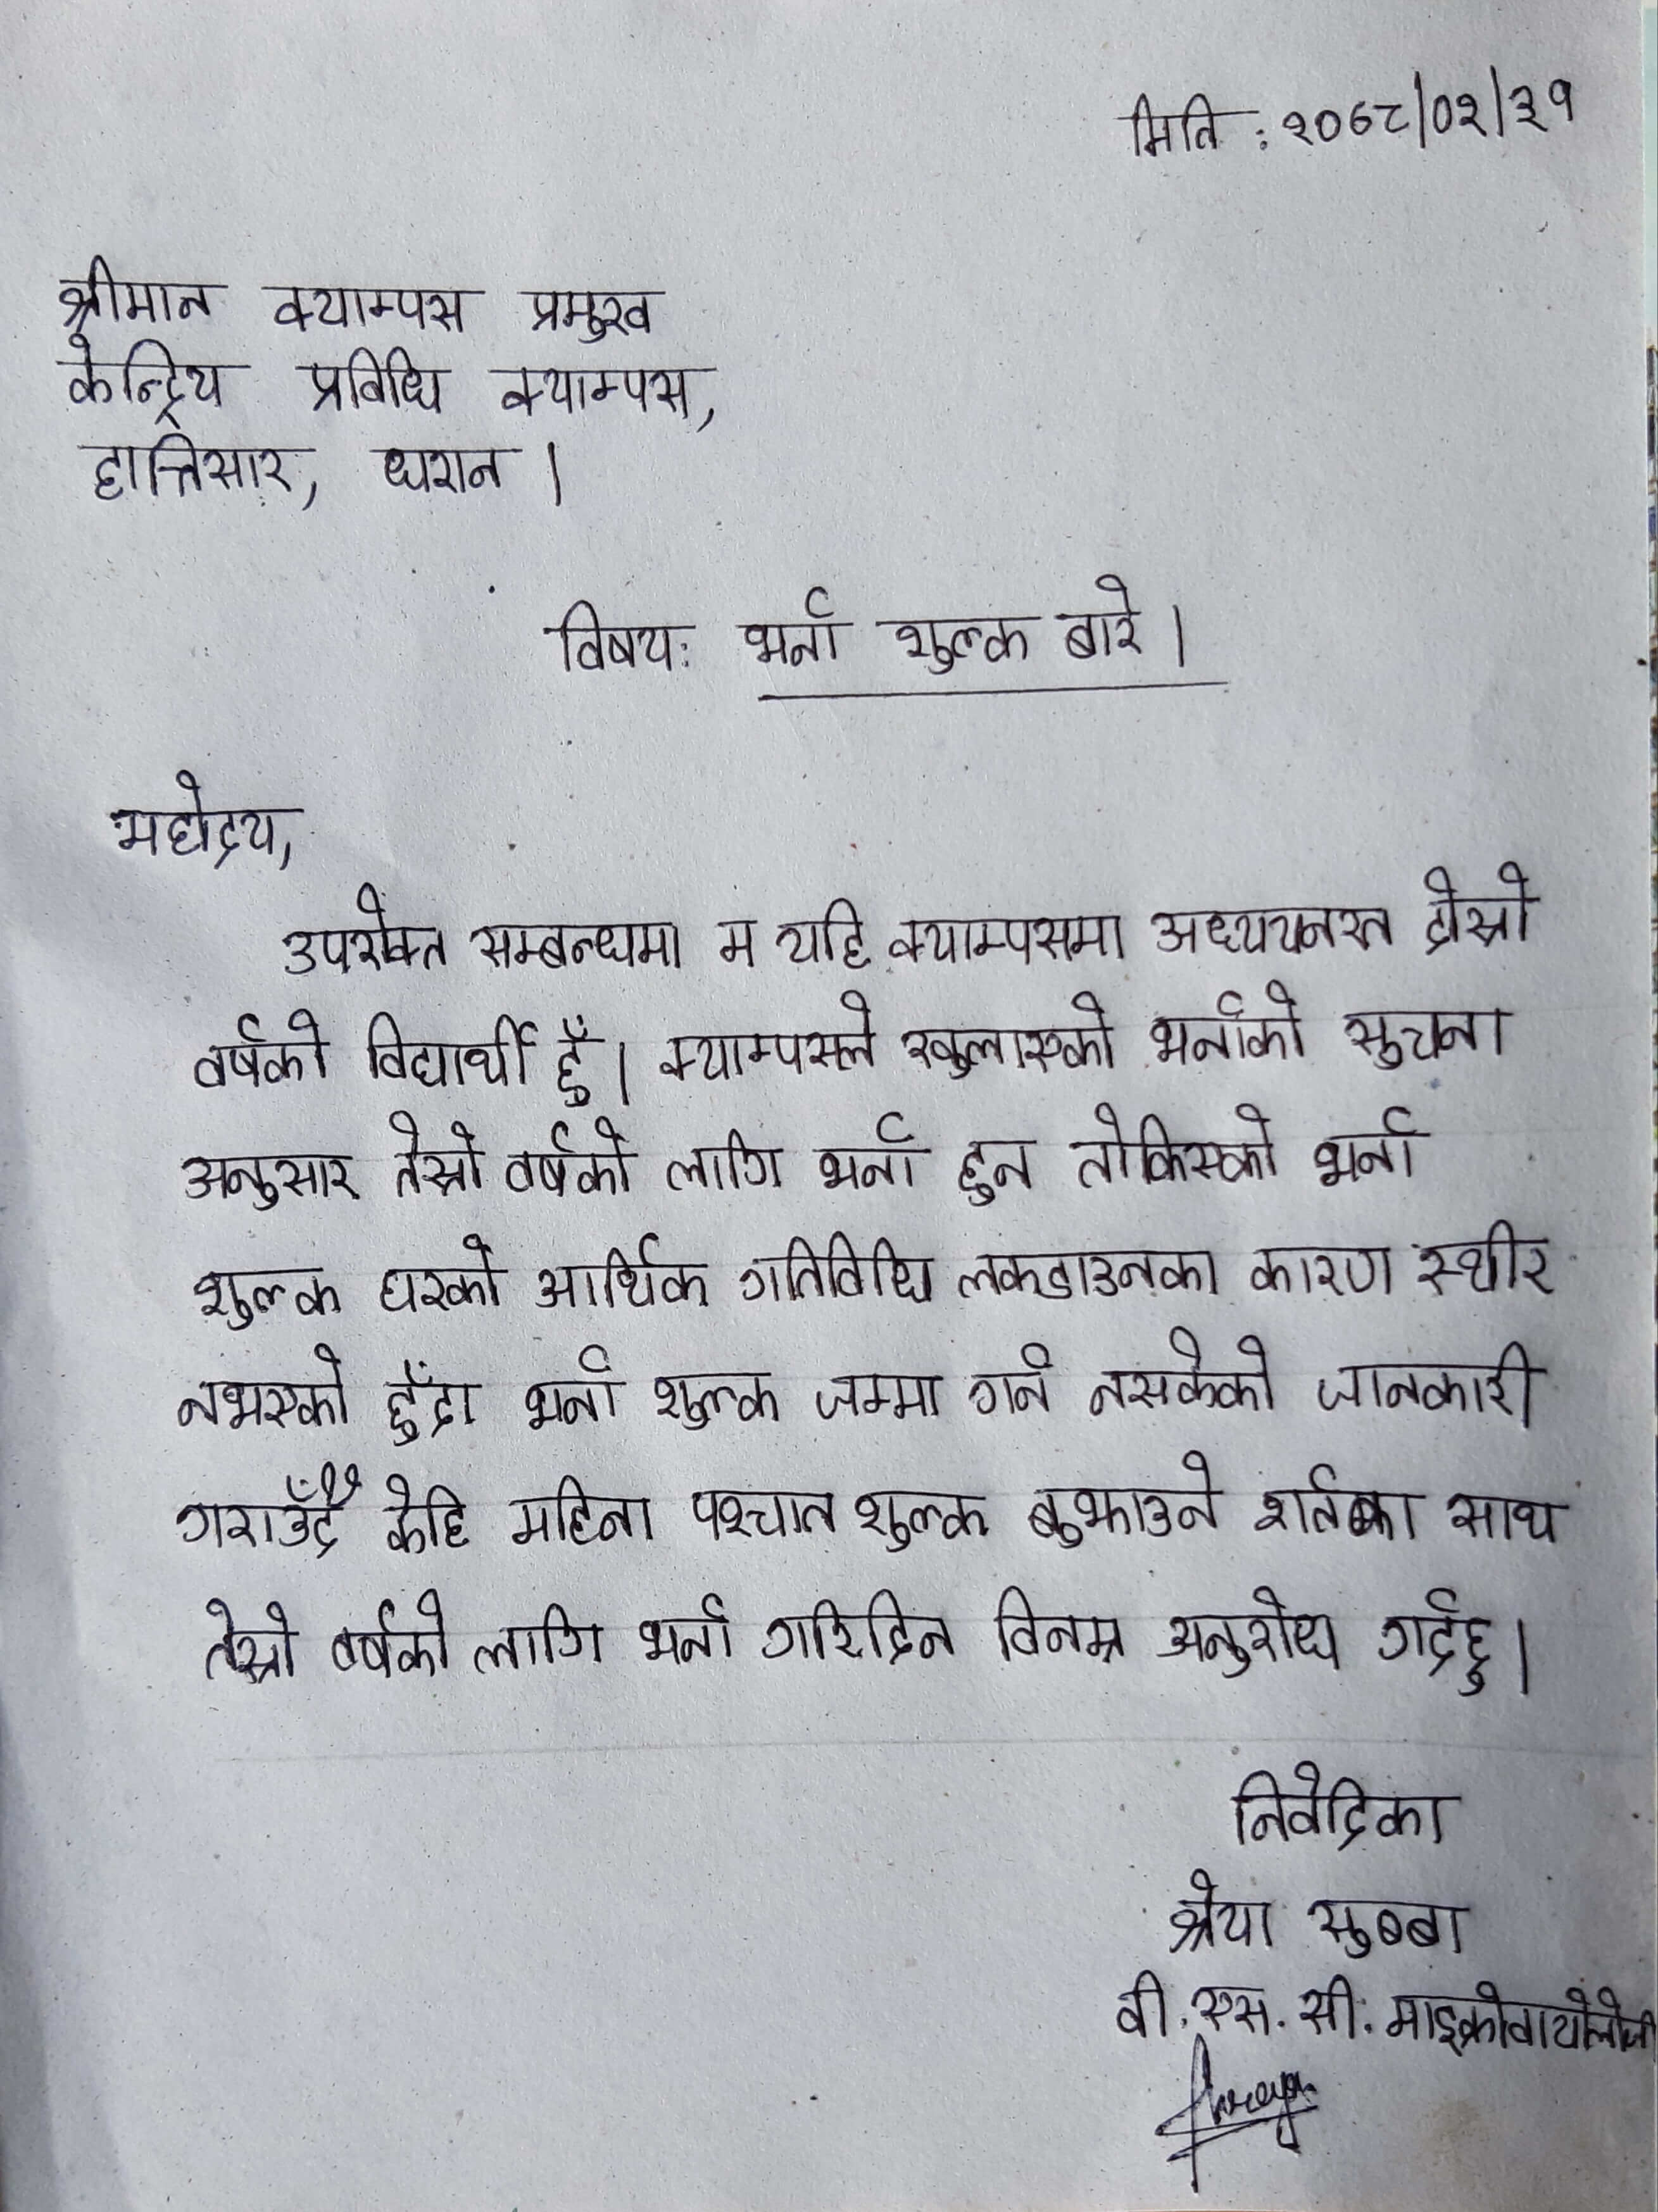 मिति : २०७८/०२/३१
श्रीमान क्याम्पस प्रमुख
केन्द्रिय प्रविधि क्याम्पस,
हात्तिसार, धरान ।
विषय: भर्ना शुल्क बारे ।
महोदय,
उपरोक्त सम्बन्धमा म यहि क्याम्पसमा अध्ययनरत दोस्रो
वर्षको विद्यार्थी हुँ । क्याम्पसले खुलाएको भर्नाको सुचना
अनुसार तेस्रो वर्षको लागि भर्ना हुन तोकिएको भर्ना
शुल्क घरको आर्थिक गतिविधि लकडाउनका कारण स्थीर
नभएको हुँदा भर्ना शुल्क जम्मा गर्न नसकेको जानकारी
गराउँदै केहि महिना पश्चात शुल्क बुझाउने शर्तका साथ
तेस्रो वर्षको लागि भर्ना गरिदिन विनम्र अनुरोध गर्दछु ।
निवेदिका
श्रेया सुब्बा
वी. एस. सी. माइक्रोवायोलोजी
Shreya